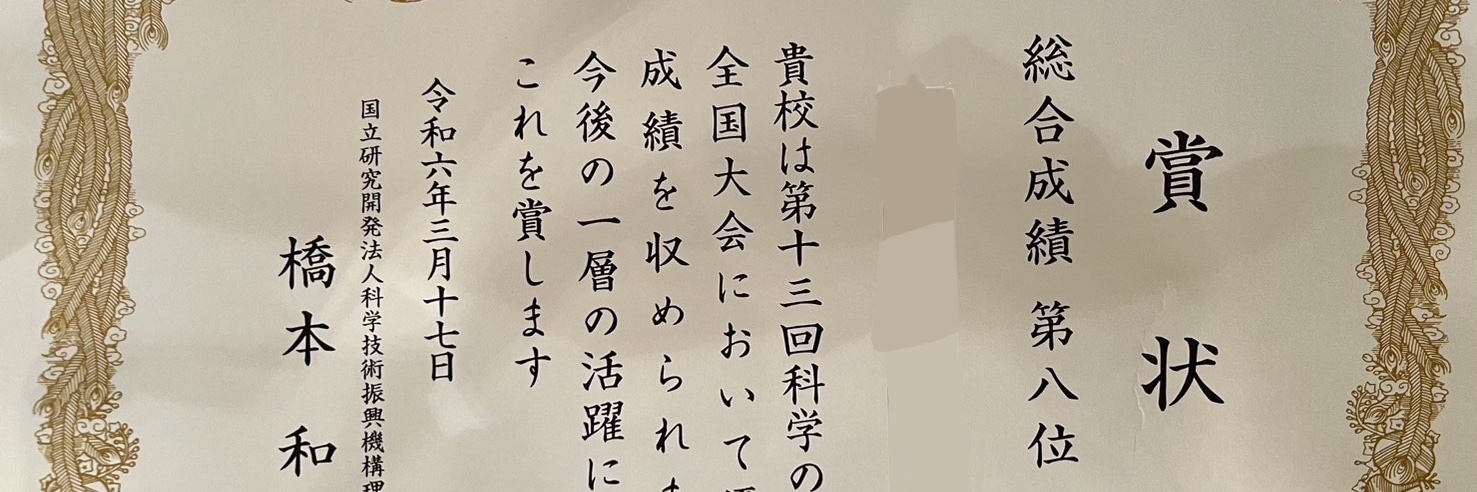 賞状
総合成績 第八位
貴校は第十三回科学の
全国大会において
成績を収められ
今後の一層の活躍に
これを賞します
令和六年三月十七日
国立研究開発法人科学技術振興機構
橋本和